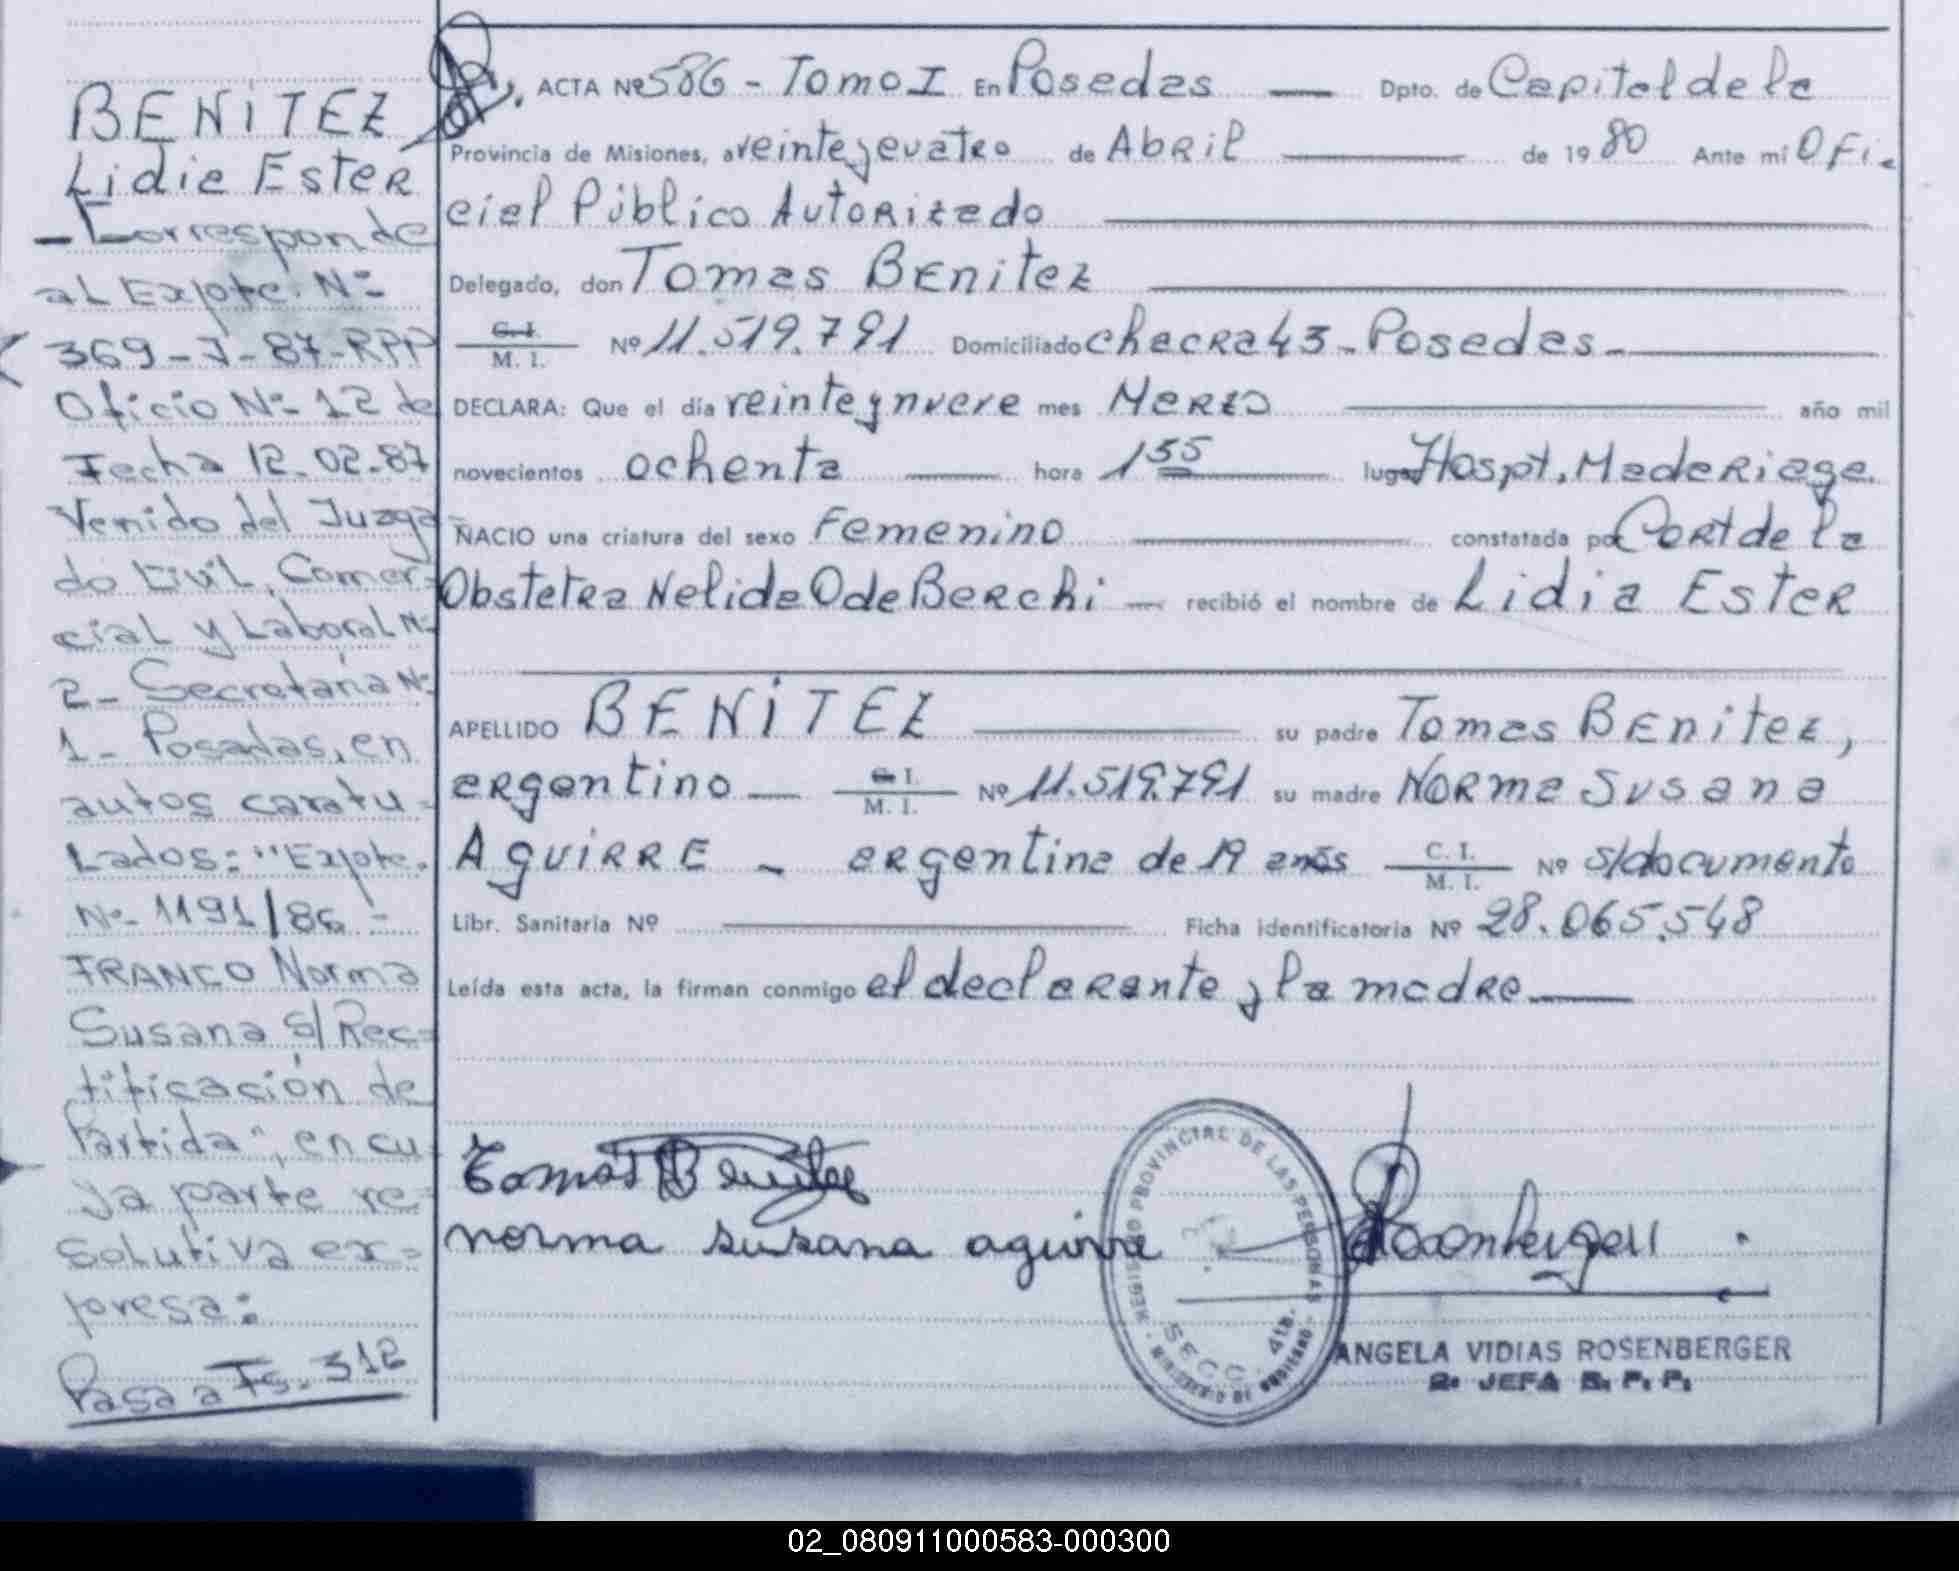 BENITEZ
Lidia Ester
- Corresponde
al Expte. Nº
369-J-87-RPP
Oficio Nº 12 de
Fecha 12-02-87
Venido del Juzga-
do Civil, Comer-
cial y Laboral Nº
2 - Secretaría Nº
1 - Posadas, en
autos caratu-
lados: "Expte.
Nº 1191/86 -
FRANCO Norma
Susana S/ Rec-
tificación de
Partida", en cu-
ya parte re-
solutiva ex-
presa:
Pasa a Fs. 312
ACTA Nº 586 - Tomo I En Posadas — Dpto. de Capital de la
Provincia de Misiones, a veinteycuatro de Abril — de 1980 Ante mi Ofi-
cial Público Autorizado
Delegado, don Tomas Benitez
C. I. M. I. Nº 11.519.791 Domiciliado chacra 43 - Posadas -
DECLARA: Que el día veinteynueve mes Marzo — año mil
novecientos ochenta — hora 1 55 — lugar Hospt. Madariaga.
NACIO una criatura del sexo Femenino — constatada por Cert de la
Obstetra Nelida O de Berchi — recibió el nombre de Lidia Ester
APELLIDO BENITEZ — su padre Tomas Benitez,
argentino — C. I. M. I. Nº 11.519.791 su madre Norma Susana
Aguirre - argentina de 19 años C. I. M. I. Nº s/documento
Libr. Sanitaria Nº — Ficha identificatoria Nº 28.065.548
Leída esta acta, la firman conmigo el declarante y la madre —
Tomas Benitez
norma susana aguirre
REGISTRO PROVINCIAL DE LAS PERSONAS
SECC. 4ta.
ANGELA VIDIAS ROSENBERGER
2º JEFA R. P. P.
02_080911000583-000300